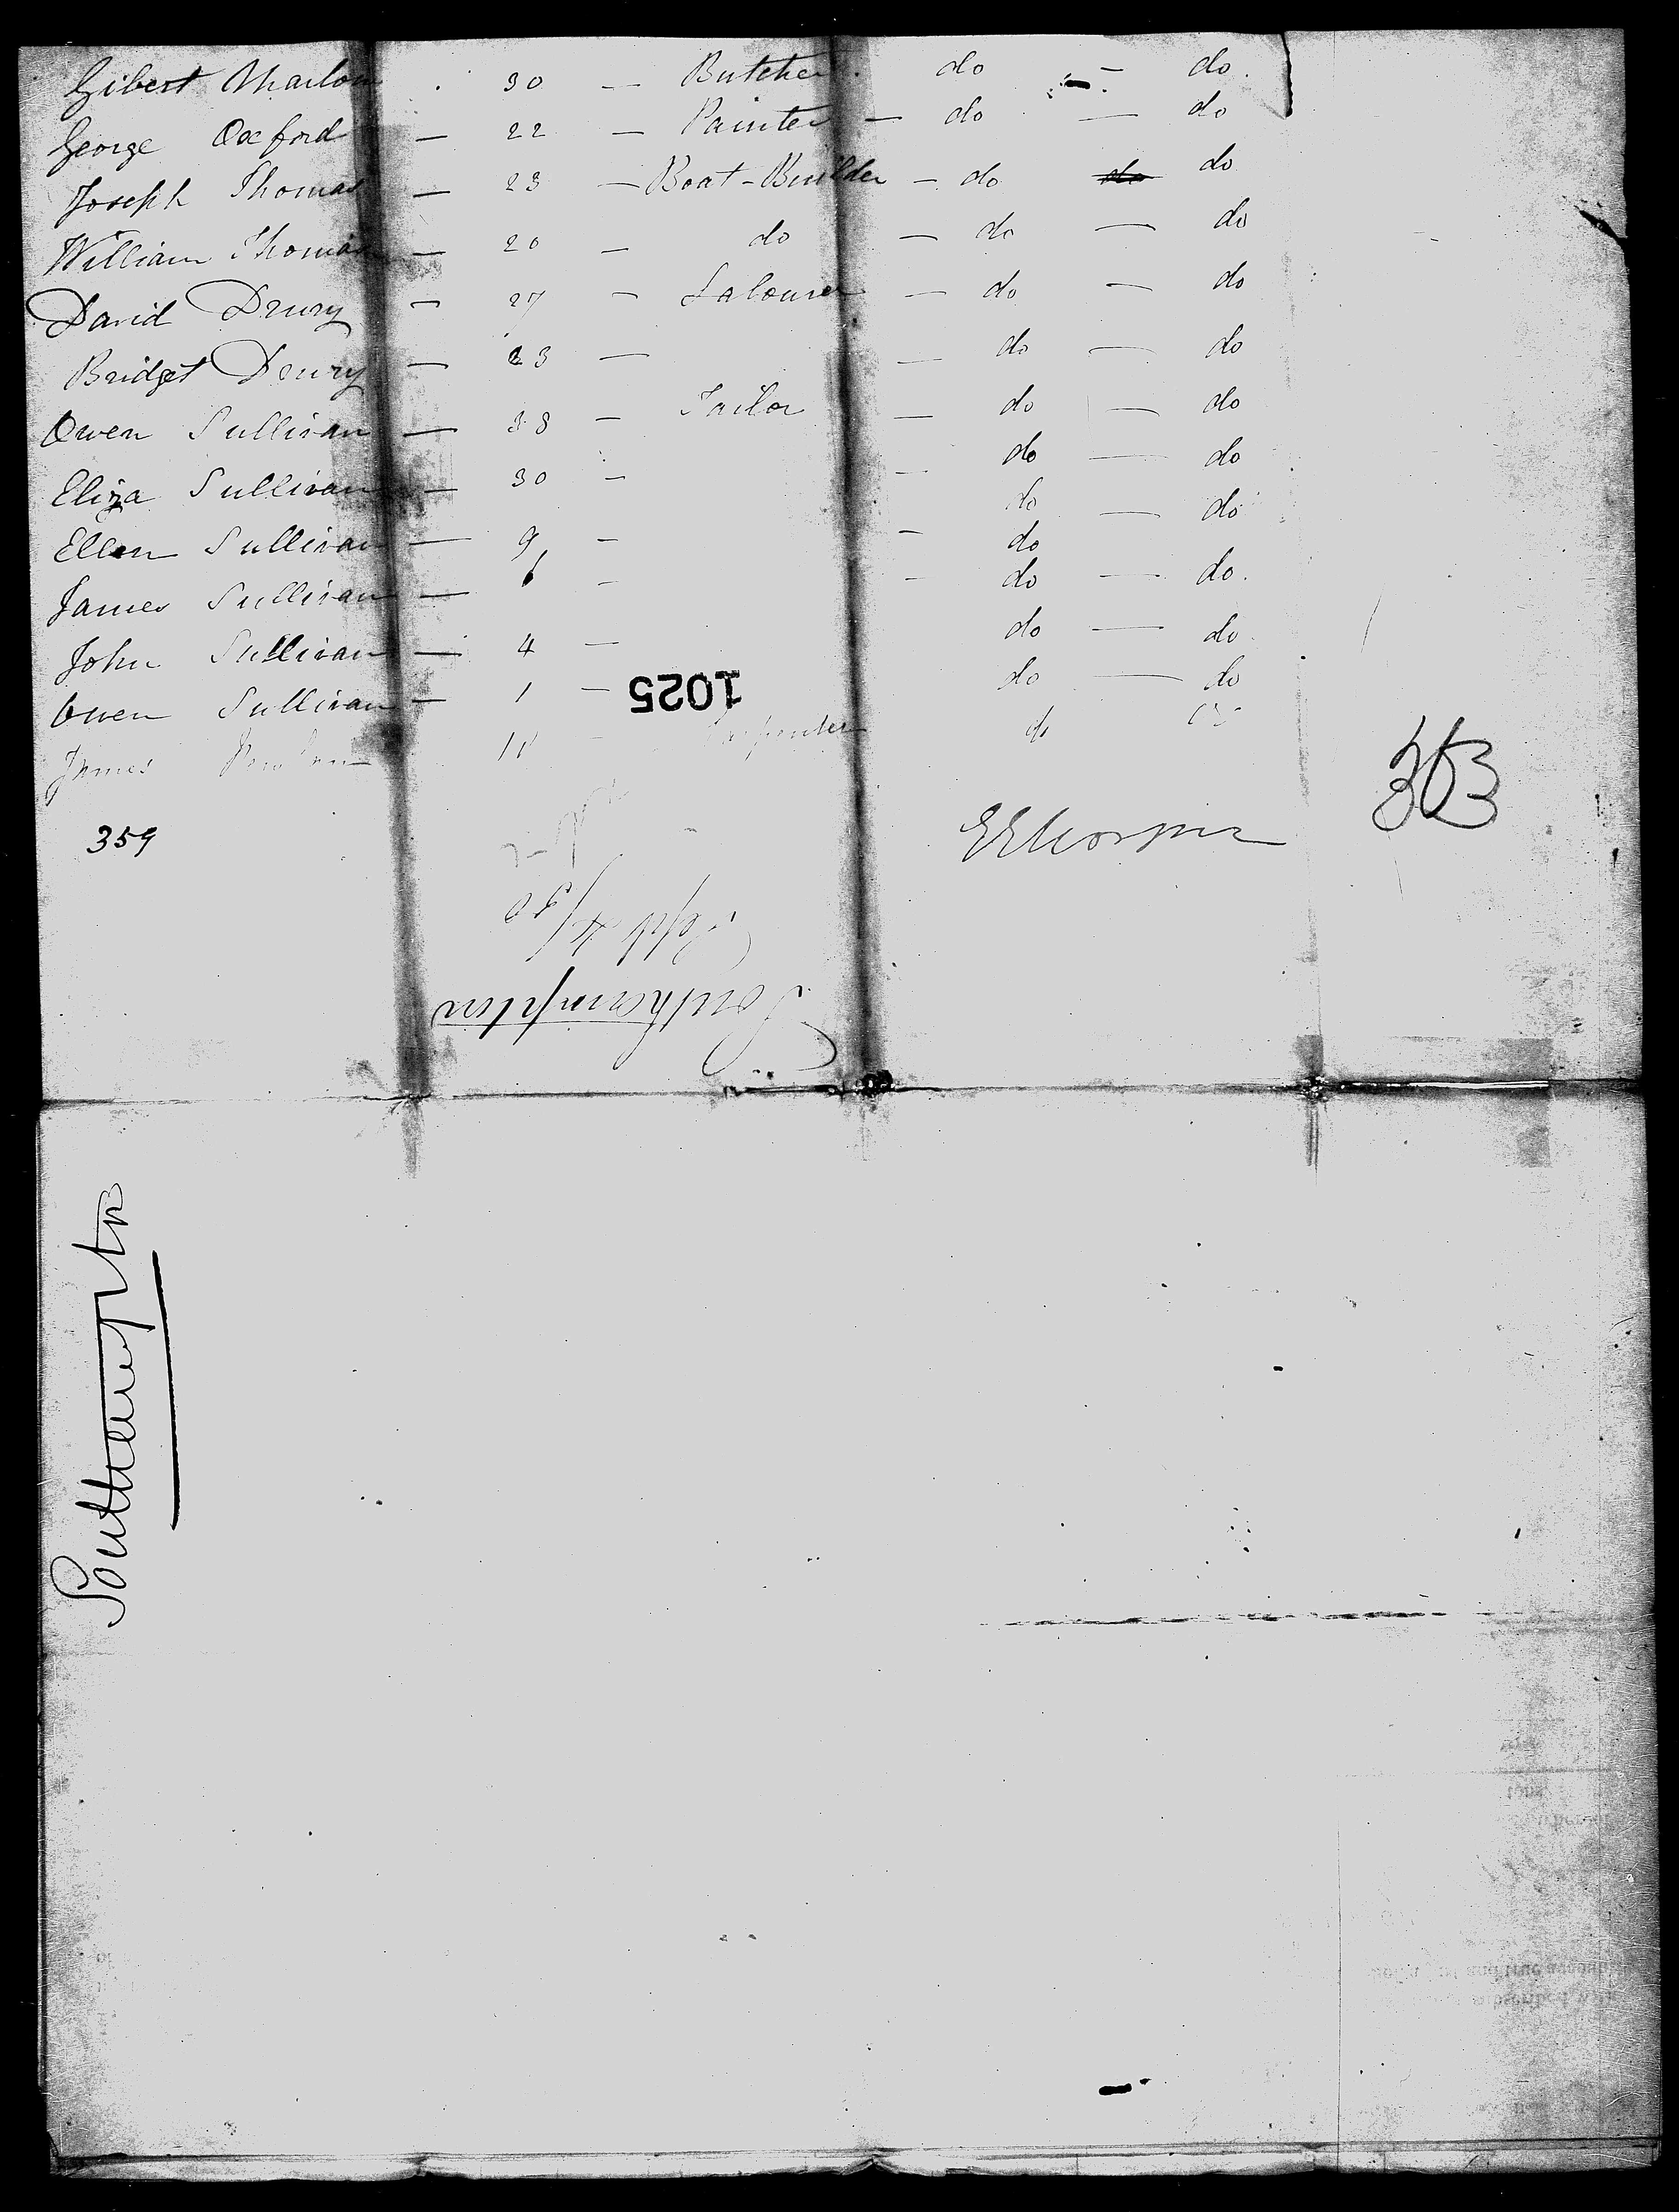 Gibert Marlow . 30 — Butcher . do — do.
George Oxford — 22 — Painter — do — do
Joseph Thomas — 23 — Boat-Builder — do do do
William Thomas — 20 — do — do — do
David Drury — 27 — Labourer — do — do
Bridget Drury — 23 — — do — do
Owen Sullivan — 38 — Tailor — do — do
Eliza Sullivan — 30 — — do — do
Ellen Sullivan — 9 — do — do
do
James Sullivan — 6 — — do — do.
John Sullivan — 4 — do — do
Owen Sullivan — 1 — do — do
James Carpenter do
1025
359
363
Sept 4/50
Southampton
Southampton